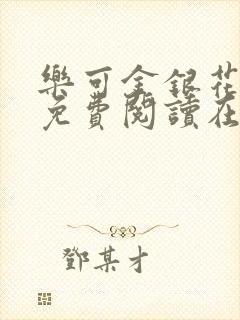 樂可金銀花
免費閱讀在
鄧某才